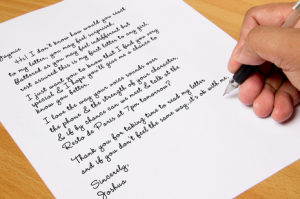 Dayne
Hi! I don't know how would you react
to my letter; you may feel surprised,
flattered or you may feel indifferent but
rest assured this is my first letter to any girl.
I just want you to know that I find you very
special & I hope you'll give me a chance to
know you better.
I love the way your voice sounds over
the phone & the strength of your character,
& if by chance can we meet & talk at the
Resto de Paris at 7pm tomorrow?
Thank you for taking time to read my letter
and if you don't feel the same way, it's ok with me
Sincerely,
Joshua